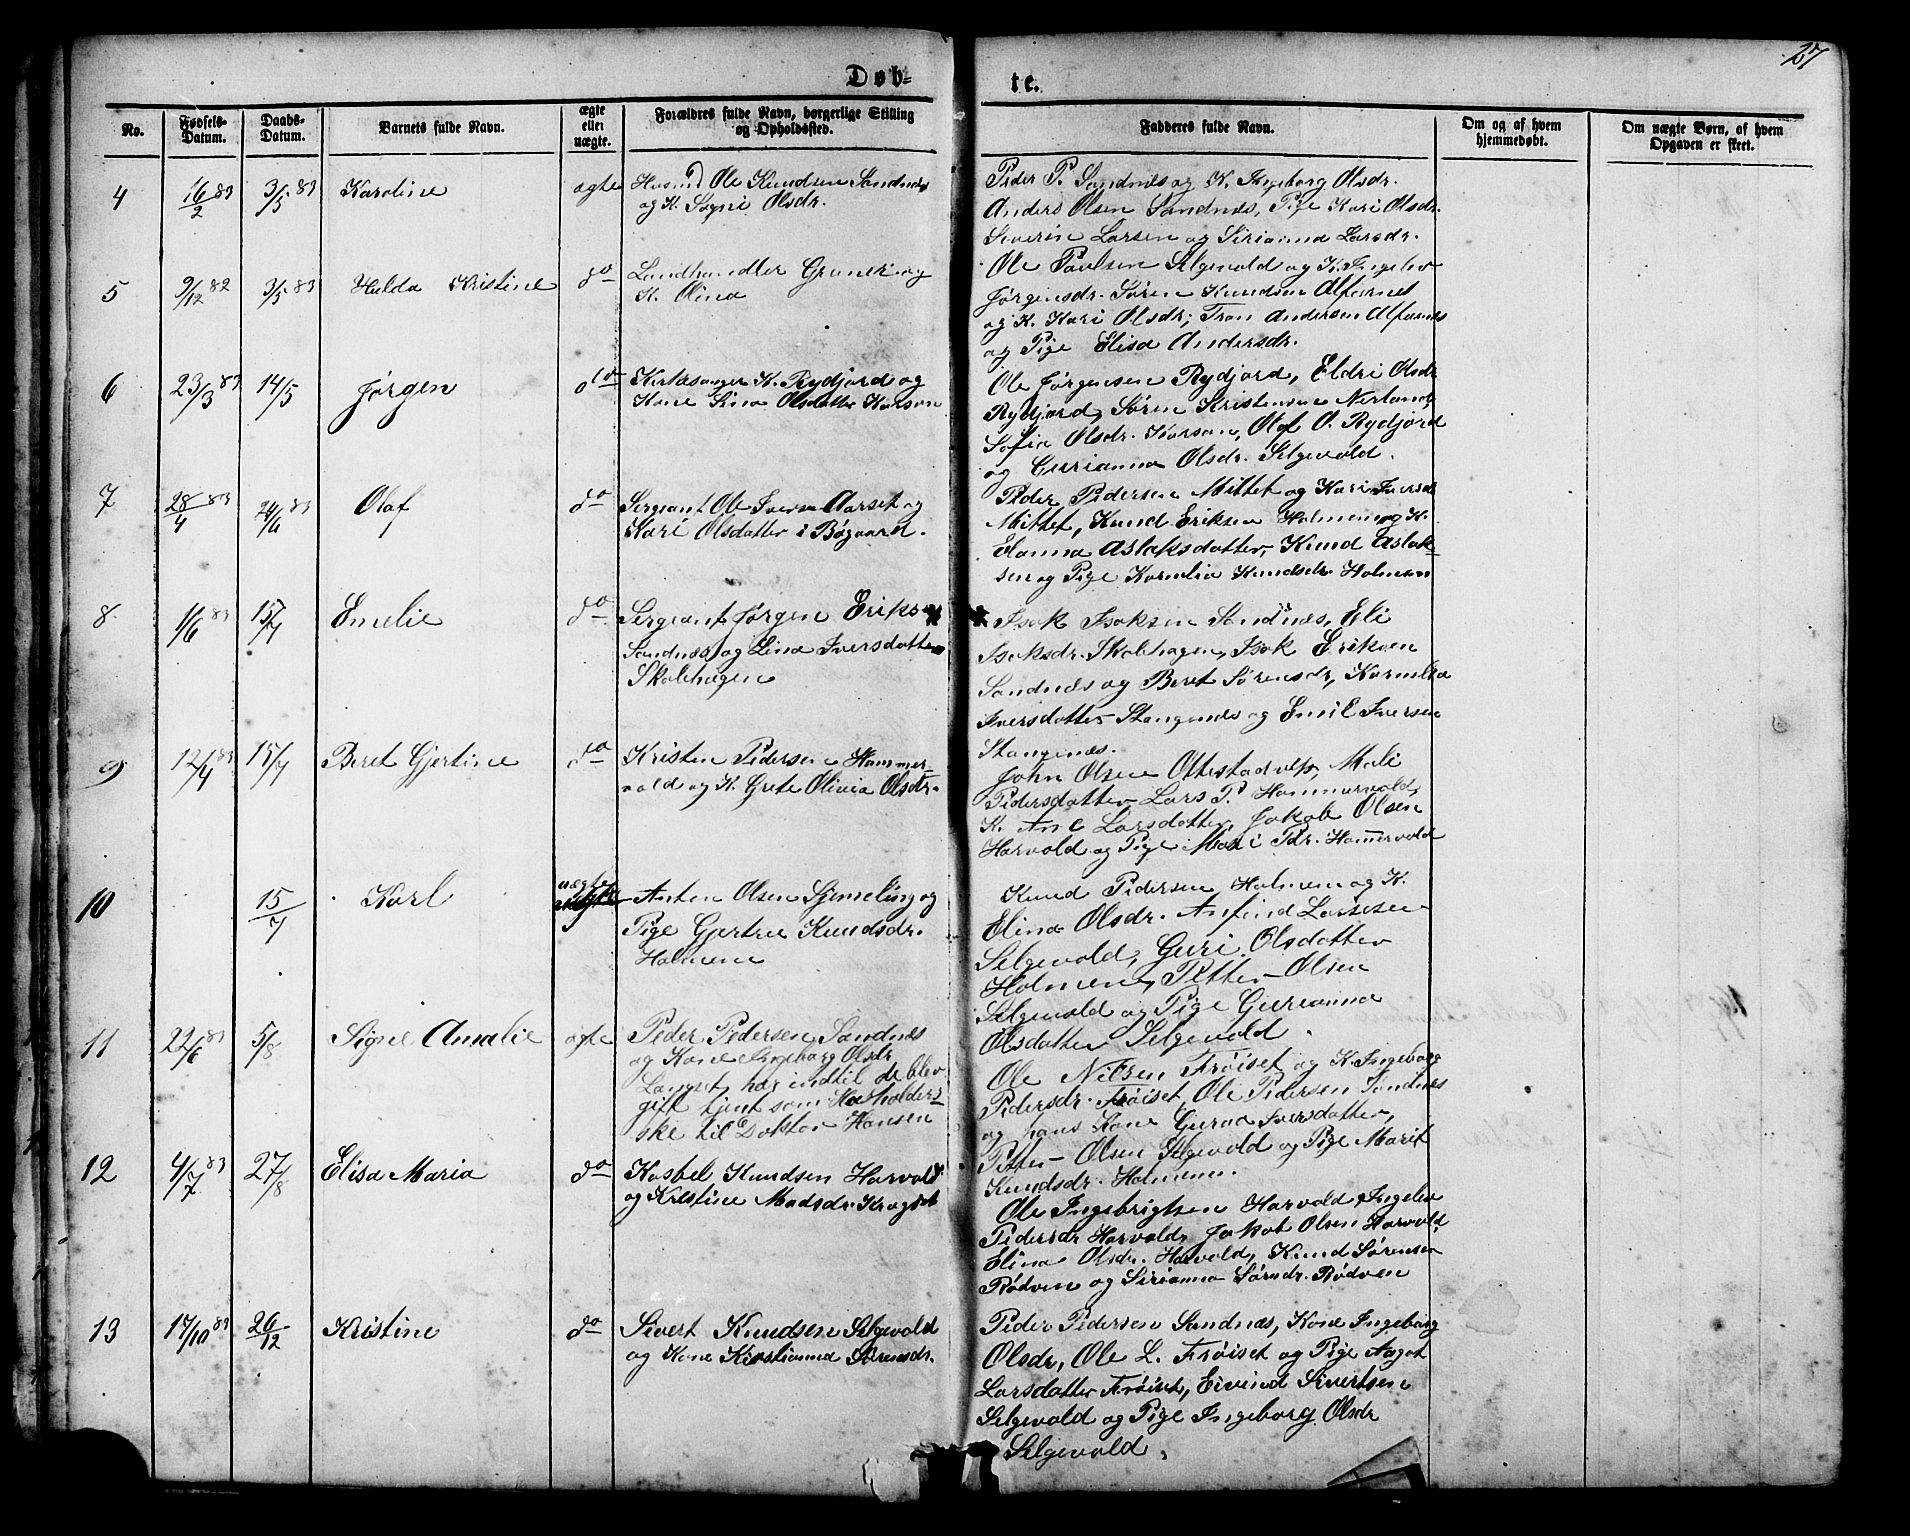 27
Døb=
te.
No.
Fødsels-
Datum.
Daabs-
Datum.
Barnets fulde Navn.
ægte
eller
uægte.
Forældres fulde Navn, borgerlige Stilling
og Opholdssted.
Fadderes fulde Navn.
Om og af hvem
hjemmedøbt.
Om uægte Børn, af hvem
Opgaven er skeet.
4
16/2 83
3/5 83
Karoline
ægte
Ole Knudsen Sandnæs
og K. Olsdr.
Peder P. Sandnæs og K. Ingeborg Olsdr.
Anders Olsen Sandnæs, Pige Kari Olsdr.
Severin Larsen og Sirianna Larsdr.
5
9/12 82
3/5 83
Hulda Kristine
do
Landhandler og
K. Olina
Ole Paulsen Selgevold og K. Ingelev
Jørgensdr. Søren Knudsen Alfarnes
og K. Kari Olsdr; Tron Andersen Alfarnes
og Pige Elisa Andersdr.
6
23/3 83
14/5
Jørgen
do
Kirkesanger K. Rydjord og
Kone Olsdatter
Ole Jørgensen Rydjord, Eldri Olsdr
Rydjord, Søren Kristensen Nerland,
Sofia Olsdr. Olaf O. Rydjord
og Gurianna Olsdr. Selgevold.
7
28/4 83
24/6 83
Olaf
do
Sergeant Ole Iversen Aarset og
Kari Olsdatter i
Peder Pedersen Mittet og Kari Iversd
Mittet, Knud Eriksen Holmem og K.
Hanna Aslaksdatter, Knud Aslak-
sen og Pige Kornelia Knudsdr Holmem
8.
1/6 83
15/7
Emelie
do
Sergeant Jørgen Eriks
Sandnæs og Lina Iversdatter
Skolehagen
Isak Isaksen Sandnæs, Eli
Isaksdr. Skolehagen, Isak Eriksen
Sandnæs og Beret Sørensdr, Kornelia
Iversdatter Stangenæs og Emil Iversen
Stangenæs.
9
12/4 83
15/7
Beret Gjertine
do
Kristen Pedersen Hammer-
vold og K. Grete Olivia Olsdr.
John Olsen Mali
Pedersdatter Lars P. Hammervold,
K. Ane Larsdatter, Jakob Olsen
Harvold og Pige Mari Pdr. Hammervold
10
15/7
Karl
uægte
Anton Olsen og
Pige Gjertru Knudsdr.
Holmem
Knud Pedersen Holmem og K.
Elina Olsdr. Anfind Lassesen
Selgevold, Guri Olsdatter
Holmem, Petter Olsen
Selgevold og Pige Gurianna
Olsdatter Selgevold.
11
22/6 83
5/8
Signe Amalie
ægte
Peder Pedersen Sandnæs
og Kone Ingeborg Olsdr
Langset, har indtil de blev
gift tjent som Husholder-
ske til Doktor Hansen
Ole Nilsen Frøiset og K. Ingeborg
Pedersdr. Frøiset, Ole Pedersen Sandnæs
og hans Kone Gurina Iversdatter,
Petter Olsen Selgevold og Pige Marit
Knudsdr. Holmem.
12
4/7 83
27/8
Elisa Maria
do
Kasbel Knudsen Harvold
og Kristine Madsdr.
Ole Ingebrigtsen Harvold, Ingelev
Pedersdr Harvold, Jakob Olsen Harvold,
Elina Olsdr. Harvold, Knud Sørensen
Rødven og Sirianna Sørnsdr. Rødven
13
17/10 83
26/12
Kristine
do
Sivert Knudsen Selgevold
og Kone Kirstianna Sørensdr.
Peder Pedersen Sandnæs, Kone Ingeborg
Olsdr, Ole L. Frøiset og Pige Aagot
Larsdatter Frøiset, Eivind Sivertsen
Selgevold og Pige Ingeborg Olsdr
Selgevold.